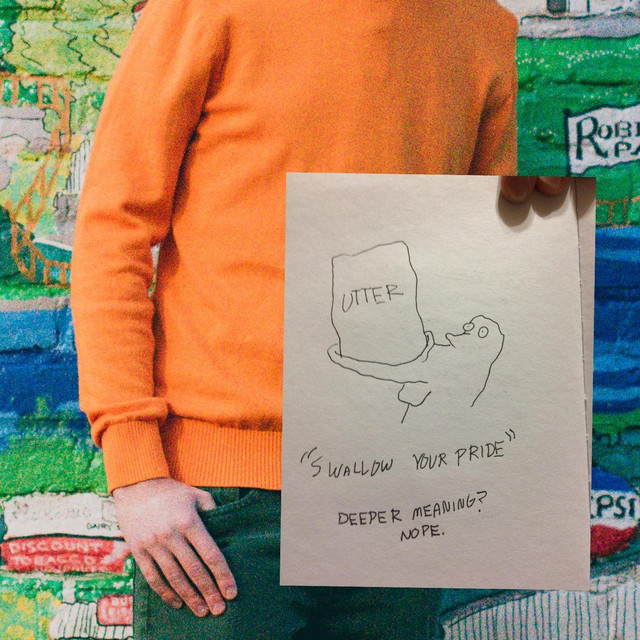 ROB
PA
UTTER
"SWALLOW YOUR PRIDE"
DEEPER MEANING?
NOPE.
PSI
DAIRY
DISCOUNT
TOBACCO